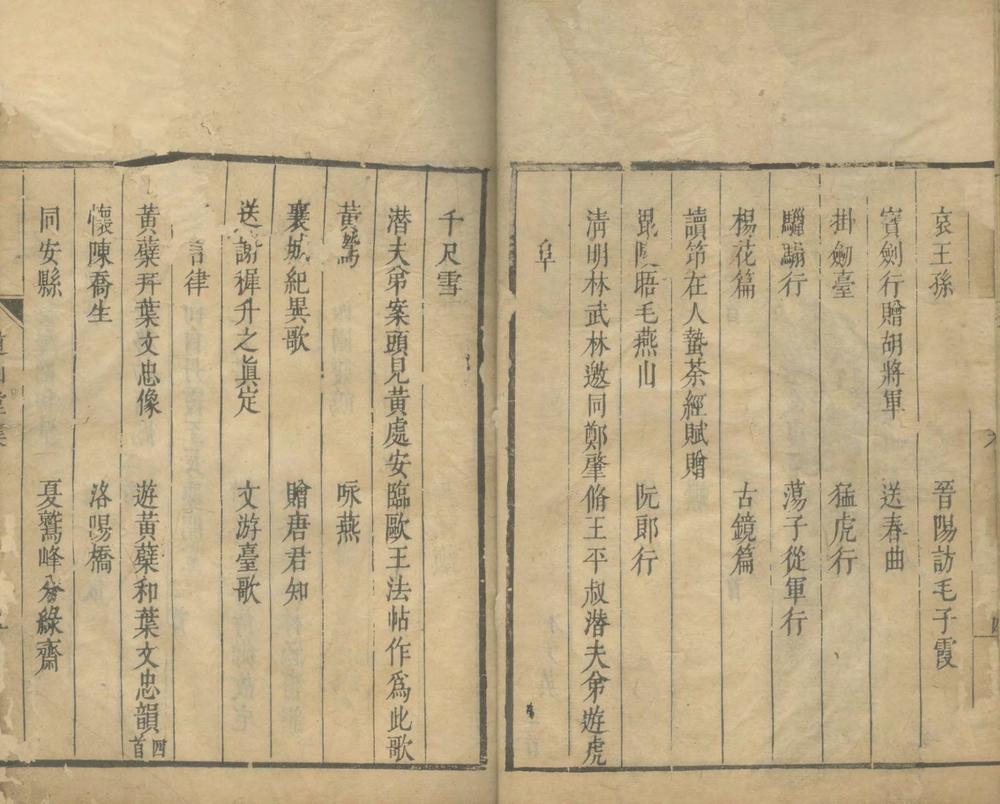 哀王孫 晉陽訪毛子霞
寶劍行贈胡將軍 送春曲
掛劒臺 猛虎行
驪騧行 蕩子從軍行
楊花篇 古鏡篇
讀笻在人蟄茶經賦贈
晤毛燕山 阮郎行
淸明林武林邀同鄭肇脩王平叔潜夫弟遊虎
阜
千尺雪
潜夫弟案頭見黃處安臨歐王法帖作爲此歌
黃鶯 咏燕
襄城紀異歌 贈唐君知
送謝穉升之眞定 文游臺歌
言律
黃蘗拜葉文忠像 遊黃蘗和葉文忠韻四首
懷陳喬生 洛陽橋
同安縣 夏鷲峰分綠齋